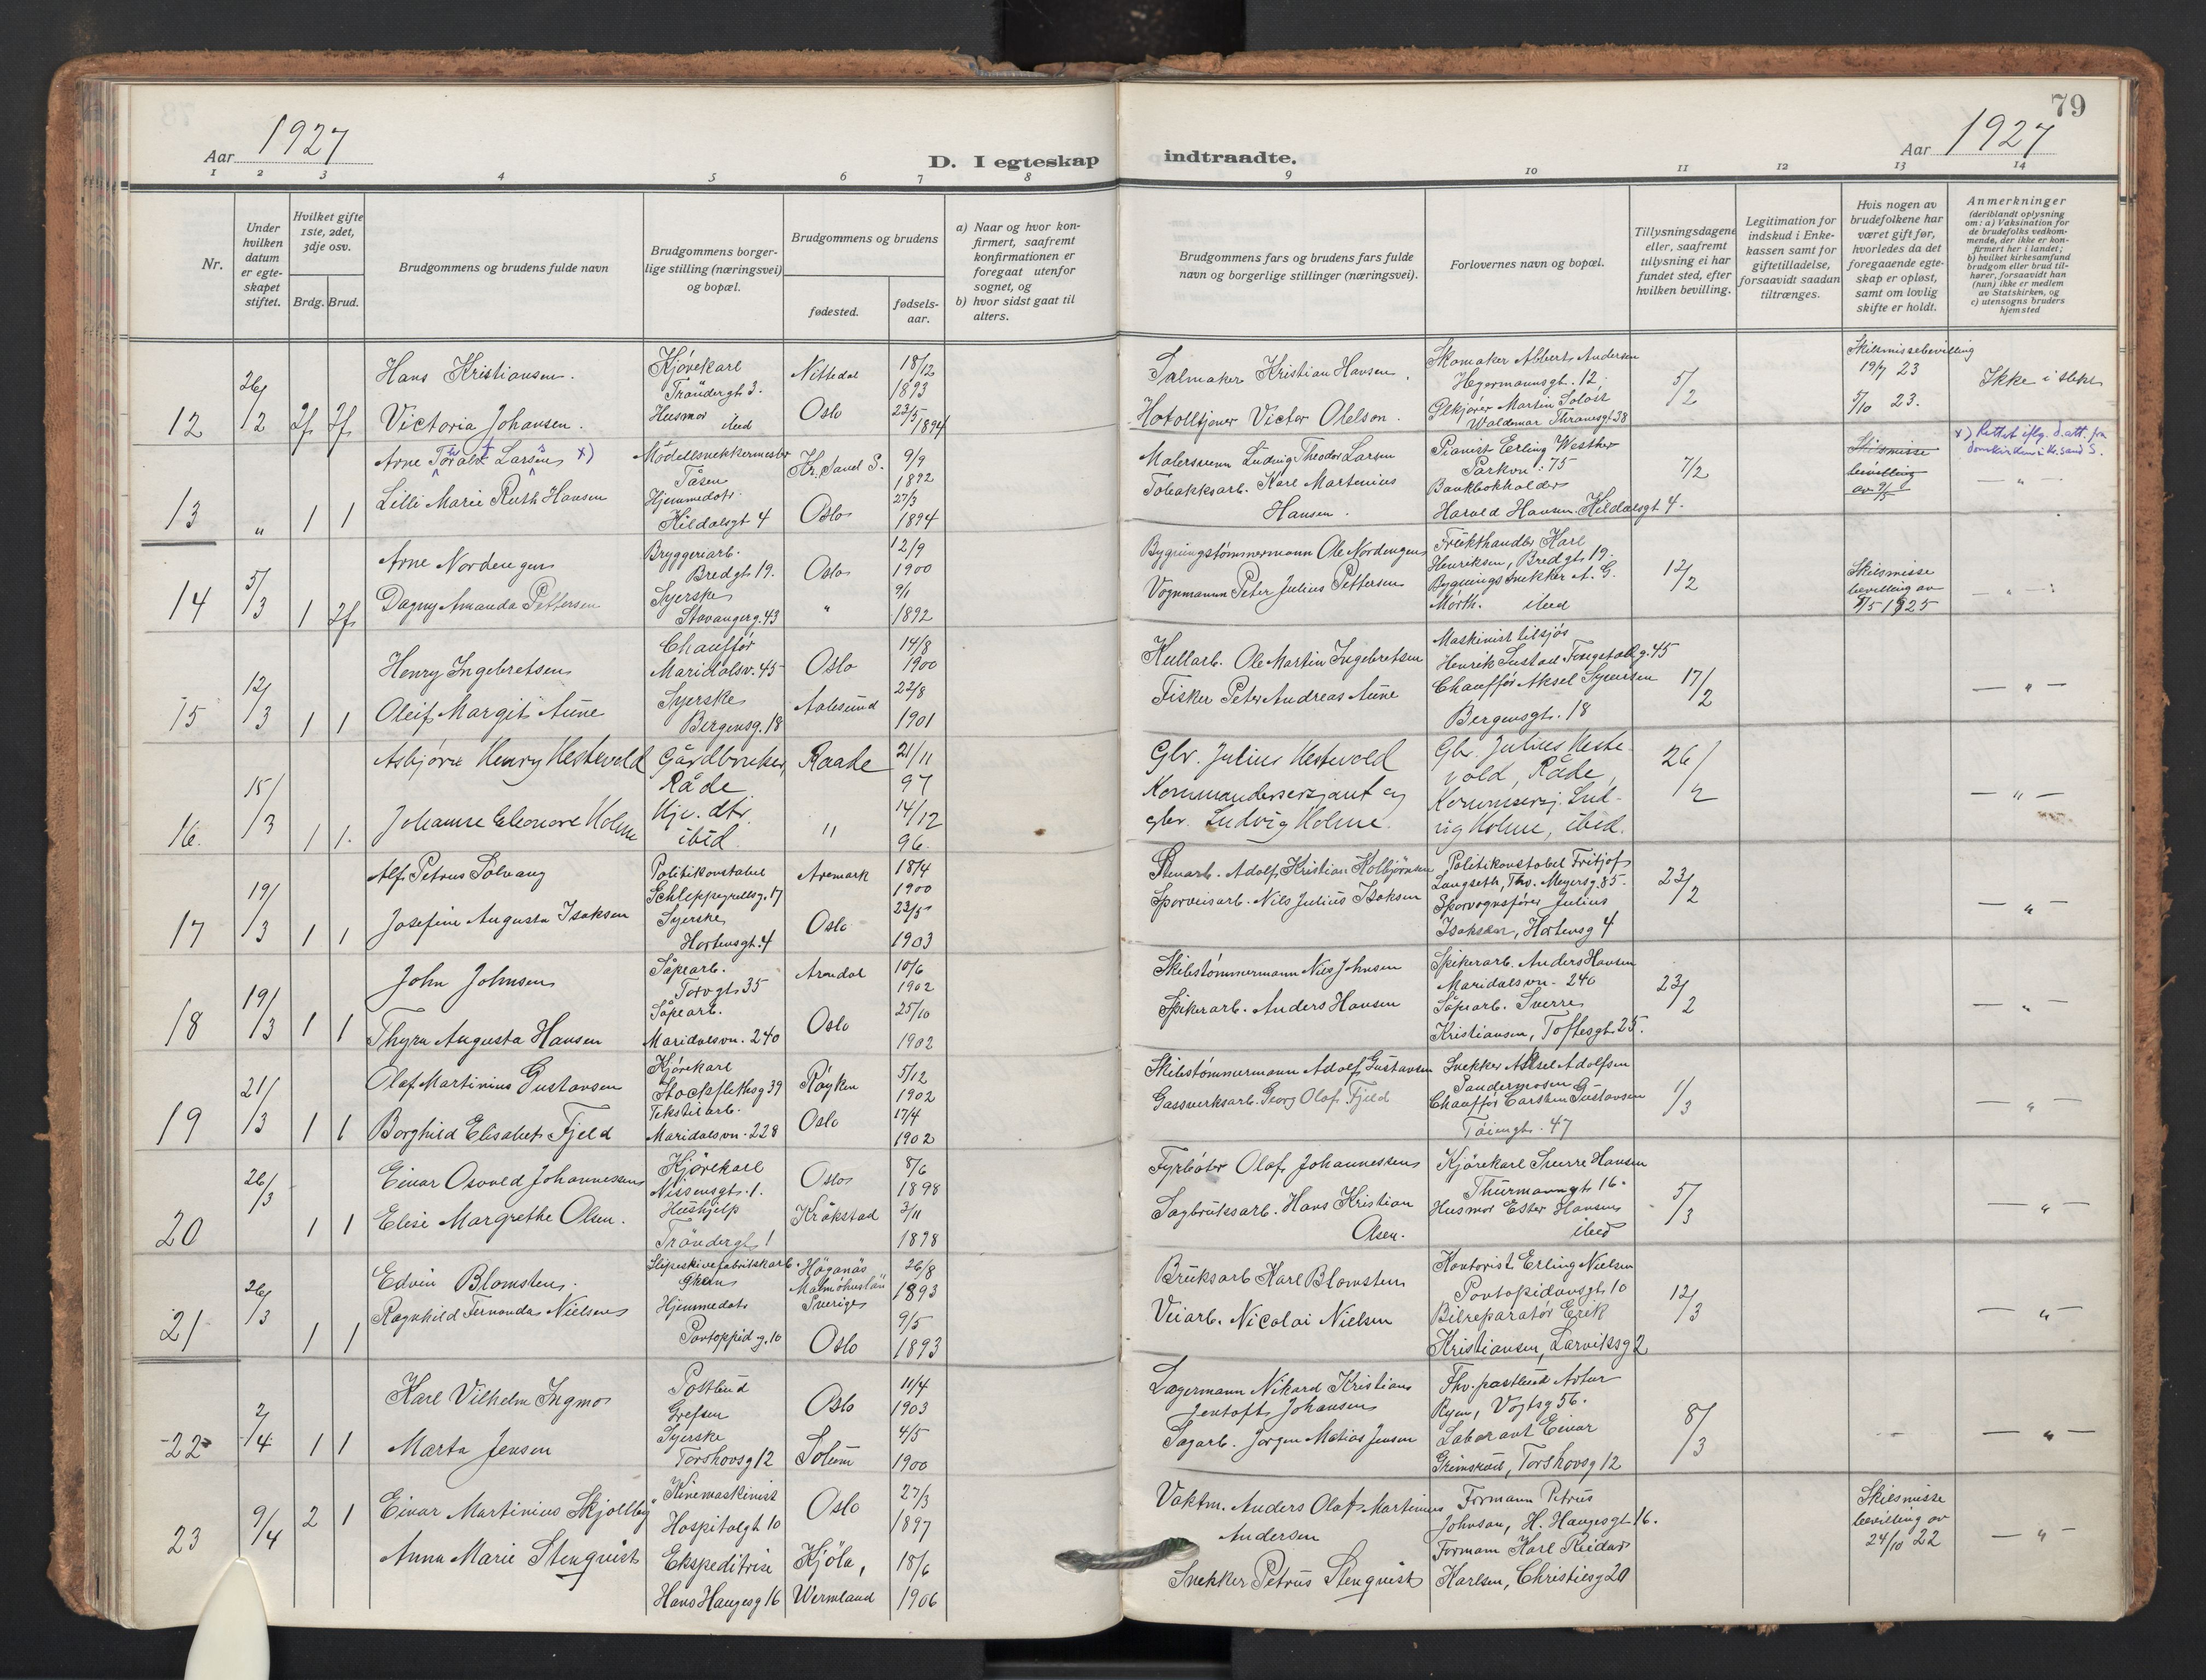 79
Aar 1927
D. I egteskap indtraadte.
Aar 1927
1 2 3 4 5 6 7 8 9 10 11 12 13 14
Nr.
Under hvilken datum er egte-skapet stiftet.
Hvilket gifte 1ste, 2det, 3dje osv.
Brdg. Brud.
Brudgommens og brudens fulde navn
Brudgommens borger-lige stilling (næringsvei) og bopæl.
Brudgommens og brudens
fødested.
fødsels-aar.
a) Naar og hvor kon-firmert, saafremt konfirmationen er foregaat utenfor sognet, og
b) hvor sidst gaat til alters.
Brudgommens fars og brudens fars fulde navn og borgerlige stillinger (næringsvei).
Forlovernes navn og bopæl.
Tillysningsdagene eller, saafremt tillysning ei har fundet sted, efter hvilken bevilling.
Legitimation for indskud i Enke-kassen samt for giftetilladelse, forsaavidt saadan tiltrænges.
Hvis nogen av brudefolkene har været gift før, hvorledes da det foregaaende egte-skap er opløst, samt om lovlig skifte er holdt.
Anmerkninger
(deriblandt oplysning om: a) Vaksination for de brudefolks vedkom-mende, der ikke er kon-firmert her i landet; b) hvilket kirkesamfund brudgom eller brud til-hører, forsaavidt han (hun) ikke er medlem av Statskirken, og c) utensogns bruders hjemsted
12 26/2 2f 2f
Hans Kristiansen. Kjørekarl Trøndergt 3. Nittedal 18/12 1893
Victoria Johansen. Husmor ibid Oslo 23/5 1894
Salmaker Kristian Hansen
Hotelltjener Victor Olelson.
Skomaker Albert Andersen
Hegermannsgt. 12,
Waldemar Thranesgt 38
5/2
Skilsmissebevilling
19/7 23
5/10 23.
Ikke i slekt
13 " 1 1
Arne Larsen x) Modellsnekkermester Tåsen Kr. Sand S. 9/9 1892
Lilli Marie Ruth Hansen Hjemmedatr Kildalsgt 4 Oslo 27/3 1894
Malersvenn Ludvig Theodor Larsen
Tobakksarb. Karl Martinius Hansen.
Pianist Erling Westher
Parkvn. 75
Bankbokholder
Harald Hansen. Hildalsgt 4.
7/2
Skilsmisse bevilling av 9/5
x) Rettet iflg. d.att. fra domkirken i Kr.sand S.
— " —
14 5/3 1 2f
Arne Nordengen Bryggeriarb. Bredgt 19. Oslo 12/9 1900
Dagny Amanda Pettersen Syerske Stavangerg. 43 " 9/1 1892
Bygningstømmermann Ole Nordengen
Vognmann Peter Julius Pettersen
Frukthandler Karl
Henriksen, Bredgt 19.
Bygningssnekker A. G.
Morth. ibid
12/2
Skilsmisse
bevilling av
5/5 1925
— " —
15 12/3 1 1
Henry Ingebretsen Chauffør Maridalsv. 45 Oslo 14/8 1900
Oleif Margit Aune Syerske Bergensg. 18 Aalesund 22/8 1901
Kullarb. Ole Martin Ingebretsen
Fisker Peter Andreas Aune
Maskinist tilsjøs
Chauffør Aksel Syversen
Bergensgt. 18
17/2
— " —
16. 15/3 1 1.
Asbjørn Henry Hestevold Gårdbruker, Råde Raade 21/11 97
Johanne Eleonore Holme Hjv. dtr. ibid " 14/12 96.
Gbr. Julius Hestevold
Kommandersersjant og
gbr. Ludvig Holme.
Gbr. Julius Heste-
vold, Råde,
Kommsersj. Lud-
vig Holme, ibid.
26/2
— " —
17 19/3 1 1
Alf Petrus Solvang Politikonstabel Schleppegrellsg. 17 Aremark 18/4 1900
Josefine Augusta Isaksen Syerske Hortensgt. 4 Oslo 23/5 1903
Stenarb. Adolf Kristian Kolbjørnsen
Sporveisarb. Nils Julius Isaksen
Politikonstabel Fritjof
Langseth, Thv. Meyersg. 85.
Sporvognsfører Julius
Isaksen, Hortensg 4
23/2
— " —
18 19/3 1 1
John Johnsen Såpearb. Torvgt 35 Arendal 10/6 1902
Thyra Augusta Hansen Såpearb. Maridalsvn. 240 Oslo 25/10 1902
Skibstømmermann Nils Johnsen
Spikerarb. Anders Hansen
Spikerarb. Anders Hansen
Maridalsvn. 240
Såpearb. Sverre
Kristiansen, Toftesgt 25.
23/2
— " —
19 21/3 1 1
Olaf Martinius Gustavsen Kjørekarl Stockflethsg 39 Røyken 5/12 1902
Borghild Elisabet Fjeld Tekstilarb. Maridalsvn. 228 Oslo 17/4 1902
Skibstømmermann Adolf Gustavsen
Gassverksarb. Georg Olaf Fjeld
Snekker Aksel Adolfsen
Sandermosen
Chauffør Carsten Gustavsen
Tøiengt. 47
1/3
— " —
20 26/3 1 1
Einar Osvald Johannessen Kjørekarl Nissensgt. 1. Oslo 8/6 1898
Elise Margrethe Olsen. Hushjelp Trøndergt 1 Kråkstad 3/11 1898
Fyrbøter Olaf Johannessen
Sagbruksarb. Hans Kristian
Olsen.
Kjørekarl Sverre Hansen
Thurmanngt 16.
Husmor Ester Hansen
ibid
5/3
— " —
21 26/3 1 1
Edvin Blomsten. Slipeskivefabrikkarb. Höganäs Malmöhuslän Sverige 26/8 1893
Ragnhild Fernanda Nielsen Hjemmedatr Pontoppid.g. 10 Oslo 9/5 1893
Bruksarb Karl Blomsten
Veiarb. Nicolai Nielsen
Kontorist Erling Nielsen
Pontopidansgt 10
Bilreparatør Erik
Kristiansen, Larviksg 2
12/3
— " —
22 2/4 1 1
Karl Vilhelm Ingmo Postbud Grefsen Oslo 11/4 1903
Marta Jensen Syerske Torshovsg 12 Solum 4/5 1900
Lagermann Nikard Kristian
Jentoft Johansen
Sagarb. Jørgen Matias Jensen
Fhv. postbud Artur
Ryen, Vogtsg 56.
Laborant Einar
Torshovsg 12
8/3
— " —
23 9/4 2 1
Einar Martinius Skjolleby Kinomaskinist Hospitalgt 10 Oslo 27/3 1897
Anna Marie Stenqvist Ekspeditrise Hans Haugesg 16 Kjöla, Wermland 18/6 1906
Vaktm. Anders Olaf Martinius
Andersen
Snekker Petrus Stenqvist
Formann Petrus
Johnson, H. Haugesgt 16.
Formann Karl Reidar
Karlsen, Christiesg 20
Skilsmisse
bevilling av
24/10 22
— " —